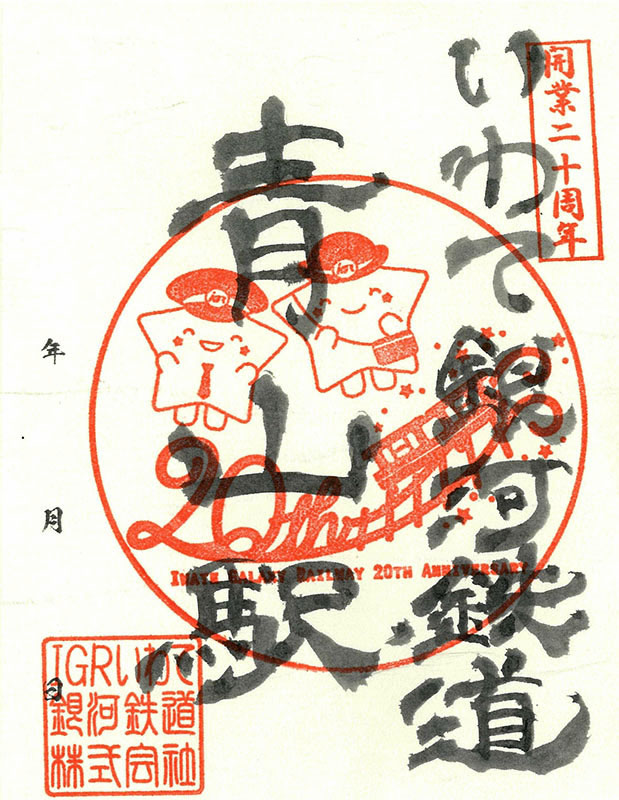 開業二十周年
いわて銀河鉄道
青山駅
igr
igr
20th
IWATE GALAXY RAILWAY 20TH ANNIVERSARY
年 月 日
IGRいわて
銀河鉄道
株式会社